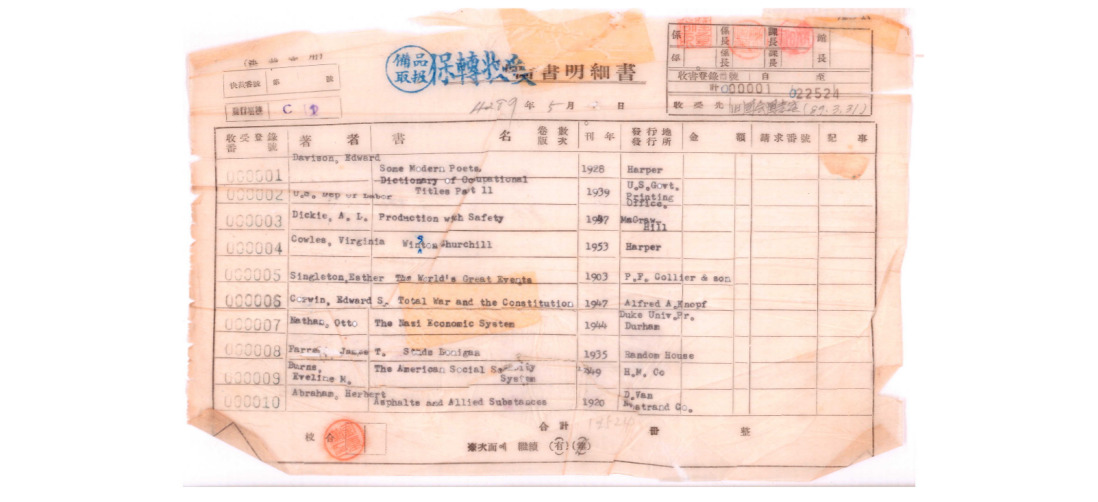 備品取扱
保轉收受
書明細書
係 係長 課長 館長
係 係長 課長
收書登錄番號 自 至
計 000001 022524
收受先
(89.3.31)
4289 年 5 月 日
決裁番號 第 號
C
收受登錄番號 著者 書名 卷數版次 刊年 發行地發行所 金額 請求番號 記事
000001 Davison, Edward Some Modern Poets 1928 Harper
000002 U.S. Dep of Labor Dictionary of Occupational Titles Part 11 1939 U.S.Govt. Printing Office.
000003 Dickie, A. L. Production with Safety 1947 McGraw Hill
000004 Cowles, Virginia Winston Churchill 1953 Harper
000005 Singleton,Esther The World's Great Events 1903 P.F. Collier & son
000006 Corwin, Edward S. Total War and the Constitution 1947 Alfred A.Knopf
000007 Nathan, Otto The Nazi Economic System 1944 Duke Univ.Pr. Durham
000008 James T. Lonigan 1935 Random House
000009 Burns, Eveline M. The American Social Security System 1949 H.M. Co
000010 Abraham, Herbert Asphalts and Allied Substances 1920 D.Van Nostrand Co.
合計 冊 整
校合
次面에 繼續 (有)(無)